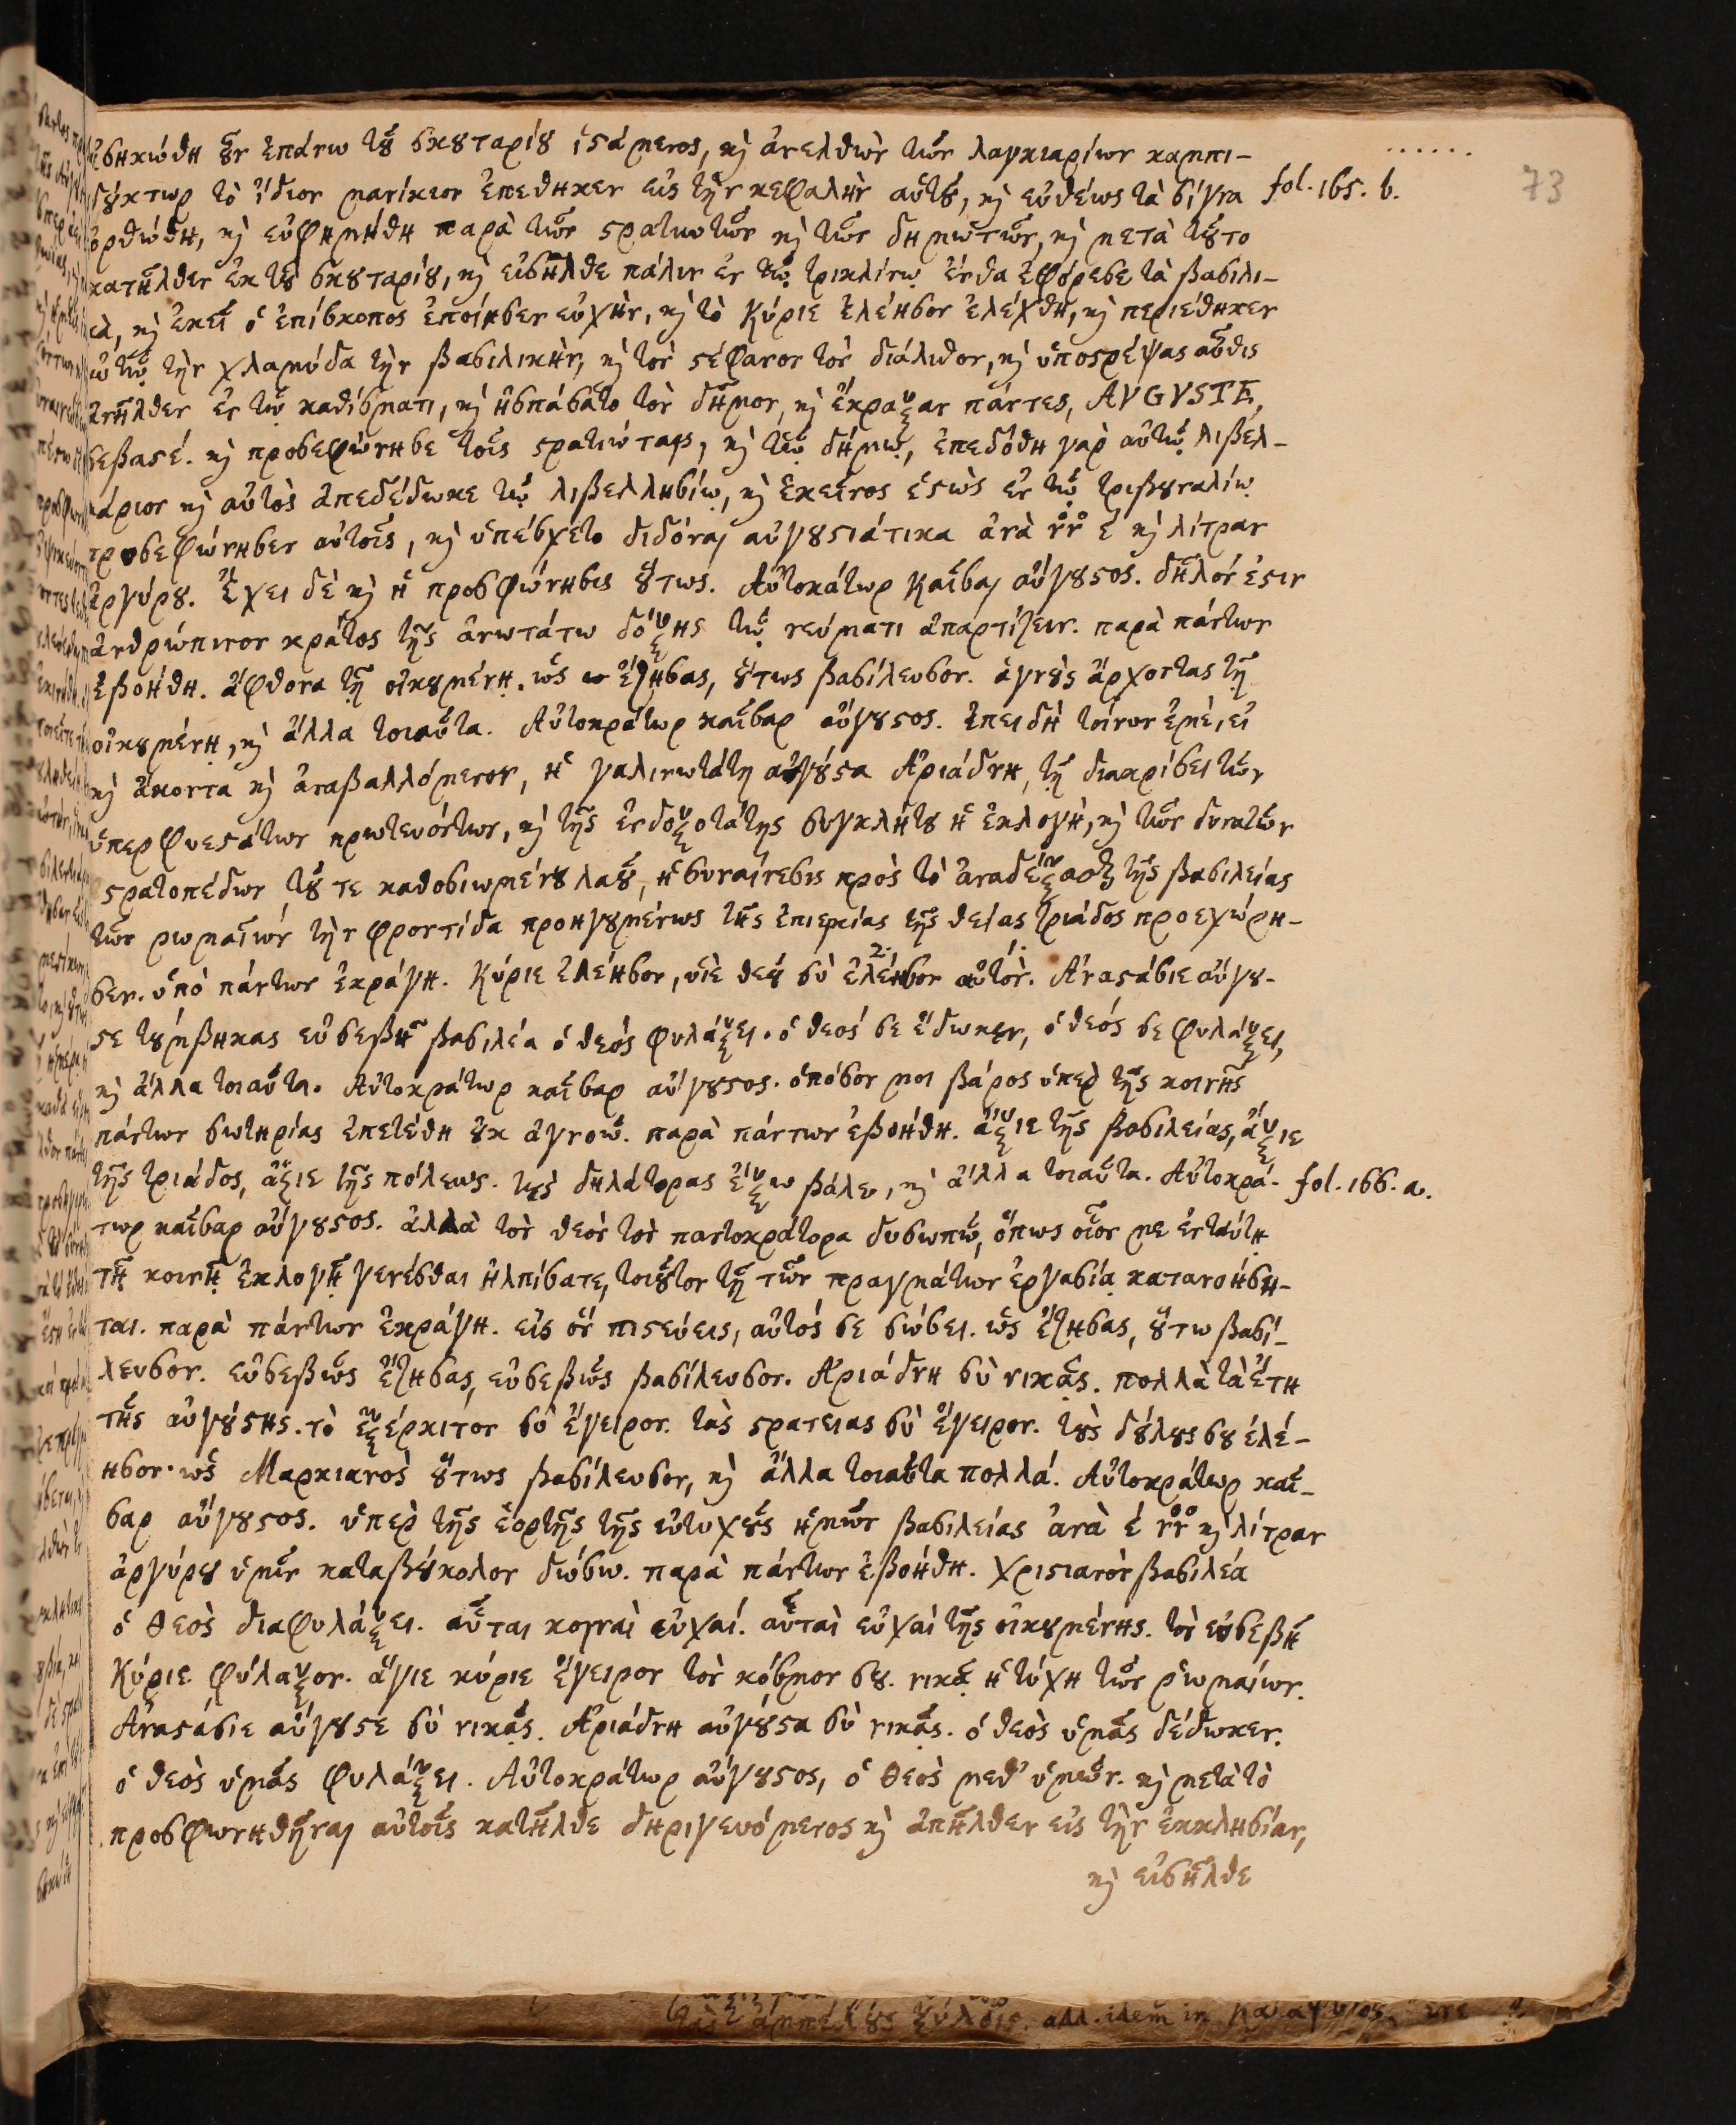 ἐσηκώθη οὖν ἐπάνω τοῦ σκουταρίου ἱστάμενος, καὶ ἀνελθὼν τῶν λαγκιαρίων καμπι-
δούκτωρ τὸ ἴδιον μανίκιον ἐπέθηκεν εἰς τὴν κεφαλὴν αὐτοῦ, καὶ εὐθέως τὰ σίγνα fol. 165. b.
73
ὀρθώθη, καὶ εὐφημήθη παρὰ τῶν στρατιωτῶν καὶ τῶν δημωτῶν, καὶ μετὰ τοῦτο
κατῆλθεν ἐκ τοῦ σκουταρίου, καὶ εἰσῆλθε πάλιν ἐν τῷ τρικλίνῳ ἔνθα ἐφόρεσε τὰ βασιλι-
κὰ, καὶ ἐκεῖ ὁ ἐπίσκοπος ἐποίησεν εὐχὴν, καὶ τὸ Κύριε ἐλέησον ἐλέχθη, καὶ περιέθηκεν
αὐτῷ τὴν χλαμύδα τὴν βασιλικὴν, καὶ τὸν στέφανον τὸν διάλιθον, καὶ ὑποστρέψας αὖθις
ἀνῆλθεν ἐν τῷ καθίσματι, καὶ ἠσπάσατο τὸν δῆμον, καὶ ἔκραξαν πάντες, AVGVSTE,
σεβαστέ. καὶ προσεφώνησε τοῖς στρατιώταις, καὶ τῷ δήμῳ, ἐπεδόθη γὰρ αὐτῷ λιβελ-
λάριον καὶ αὐτὸς ἀπεδέδωκε τῷ λιβελλησίῳ, καὶ ἐκεῖνος ἑστὼς ἐν τῷ τριβουναλίῳ
προσεφώνησεν αὐτοῖς, καὶ ὑπέσχετο διδόναι αὐγουστιάτικα ἀνὰ νν ε καὶ λίτραν
ἀργύρου. Ἔχει δὲ καὶ ἡ προσφώνησις οὕτως. Αὐτοκάτωρ Καῖσαι αὔγουστος. δῆλόν ἐστιν
ἀνθρώπινον κράτος τῆς ἀνωτάτω δόξης τῷ νεύματι ἀπαρτίζειν. παρὰ πάντων
ἐβοήθη. ἄφθονα τῇ οἰκουμένῃ. ὡς ἔζησας, οὕτως βασίλευσον. ἁγνοὺς ἄρχοντας τῇ
οἰκουμένῃ, καὶ ἄλλα τοιαῦτα. Αὐτοκράτωρ καῖσαρ αὔγουστος. Ἐπειδὴ τοίνυν ἐμὲ, εἰ
καὶ ἄκοντα καὶ ἀναβαλλόμενον, ἡ γαλινωτάτη αὐγούστα Ἀριάδνη, τῇ διακρίσει τῶν
ὑπερφυεστάτων πρωτευόντων, καὶ τῆς ἐνδοξοτάτης συγκλήτου ἡ ἐκλογὴ, καὶ τῶν δυνατῶν
στρατοπέδων, τοῦ τε καθοσιωμένου λαοῦ, ἡ συναίνεσις πρὸς τὸ ἀναδέξασθαι τῆς βασιλείας
τῶν ρωμαίων τὴν φροντίδα προηγουμένως τῆς ἐπιεικίας τῆς θείας τριάδος προεχώρη-
σεν. ὑπὸ πάντων ἐκράγη. Κύριε ἐλέησον, υἱὲ θεοῦ σὺ ἐλέησον αὐτόν. Ἀναστάσιε αὔγου-
στε τούμβηκας εὐσεβῆ βασιλέα ὁ θεὸς φυλάξει. ὁ θεός σε ἔδωκεν, ὁ θεός σε φυλάξει,
καὶ ἄλλα τοιαῦτα. Αὐτοκράτωρ καῖσαρ αὔγουστος. ὁπόσον μοι βάρος ὑπὲρ τῆς κοινῆς
πάντων σωτηρίας ἐπετέθη οὐκ ἀγνοῶ. παρὰ πάντων ἐβοήθη. ἄξιε τῆς βασιλείας, ἄξιε
τῆς τριάδος, ἄξιε τῆς πόλεως. τοὺς δηλάτορας ἔξω βάλε, καὶ ἄλλα τοιαῦτα. Αὐτοκρά- fol. 166. a.
τωρ καῖσαρ αὔγουστος. ἀλλὰ τὸν θεὸν τὸν παντοκράτορα δυσωπῶ, ὅπως οἷον με ἐν ταύτῃ
τῇ κοινῇ ἐκλογῇ γενέσθαι ἠλπίσατε, τοιοῦτον τῇ τῶν πραγμάτων ἐργασίᾳ κατανοήση-
ται. παρὰ πάντων ἐκράγη. εἰς ὃν πιστεύεις, αὐτός σε σώσει. ὡς ἔζησας, οὕτω βασί-
λευσον. εὐσεβῶς ἔζησας, εὐσεβῶς βασίλευσον. Ἀριάδνη σὺ νικᾷς. πολλὰ τὰ ἔτη
τῆς αὐγούστης. τὸ ἐξέρκιτον σὺ ἔγειρον. τὰς στρατειας σὺ ἔγειρον. τοὺς δούλους σου ἐλέ-
ησον. ὡς Μαρκιανὸς οὕτως βασίλευσον, καὶ ἄλλα τοιαῦτα πολλά. Αὐτοκράτωρ καῖ-
σαρ αὔγουστος. ὑπὲρ τῆς ἑορτῆς τῆς εὐτυχοῦς ἡμῶν βασιλείας ἀνὰ ε νν καὶ λίτραν
ἀργύρου ὑμῖν καταβούκολον δώσω. παρὰ πάντων ἐβοήθη. Χριστιανὸν βασιλέα
ὁ θεὸς διαφυλάξει. αὗται κοιναὶ εὐχαί. αὗται εὐχαὶ τῆς οἰκουμένης. τὸν εὐσεβῆ
Κύριε φύλαξον. ἅγιε κύριε ἔγειρον τὸν κόσμον σου. νικᾷ ἡ τύχη τῶν ρωμαίων.
Ἀναστάσιε αὔγουστε σὺ νικᾷς. Ἀριάδνη αὐγούστα σὺ νικᾷς. ὁ θεὸς ὑμᾶς δέδωκεν.
ὁ θεὸς ὑμᾶς φυλάξει. Αὐτοκράτωρ αὔγουστος, ὁ θεὸς μεθ' ὑμῶν. καὶ μετὰ τὸ
προσφωνηθῆναι αὐτοῖς κατῆλθε δηριγευόμενος καὶ ἀπῆλθεν εἰς τὴν ἐκκλησίαν,
καὶ εἰσῆλθε